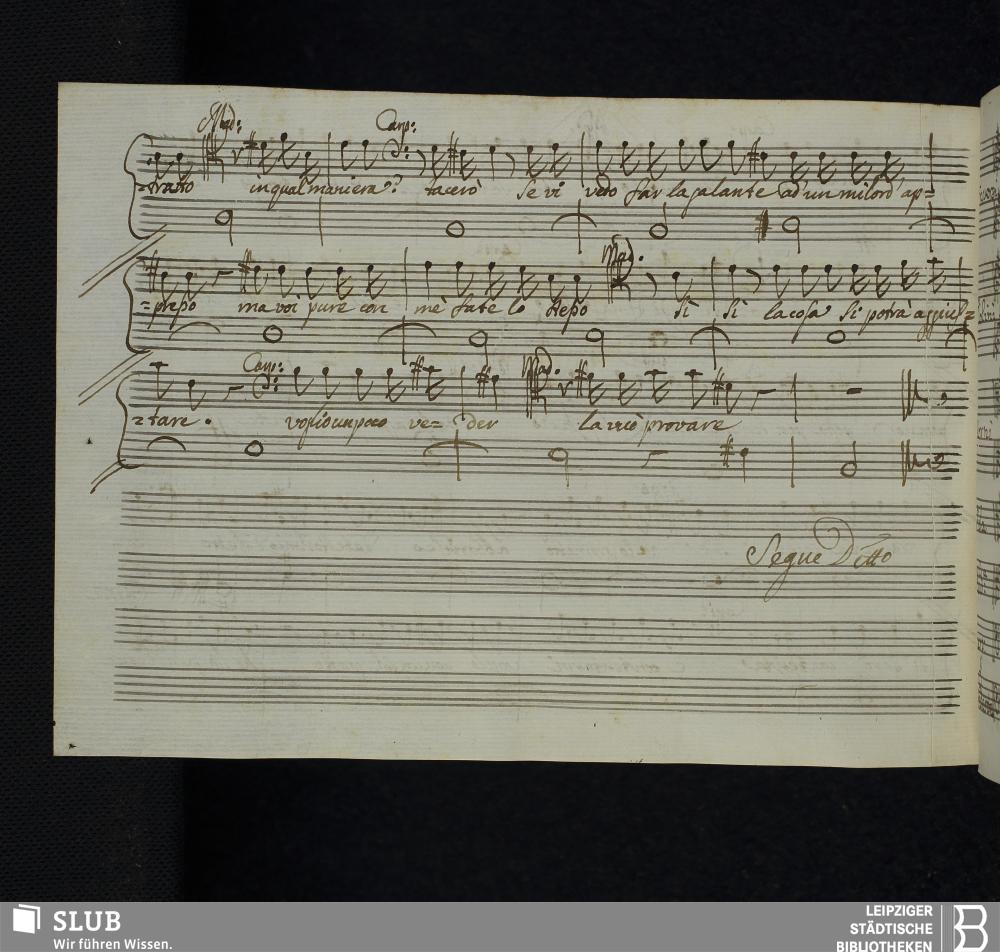 Mad: Cap:
=tratto in qual maniera? tacerò se vi vedo far la galante ad' un milord ap=
Mad.
=presso ma voi pure con mè fate lo stesso Si Si la cosa Si potrà aggius=
Cap: Mad.
=tare. voglio un poco ve= der la vuò provare
Segue Ditto
SLUB
Wir führen Wissen.
LEIPZIGER
STÄDTISCHE
BIBLIOTHEKEN